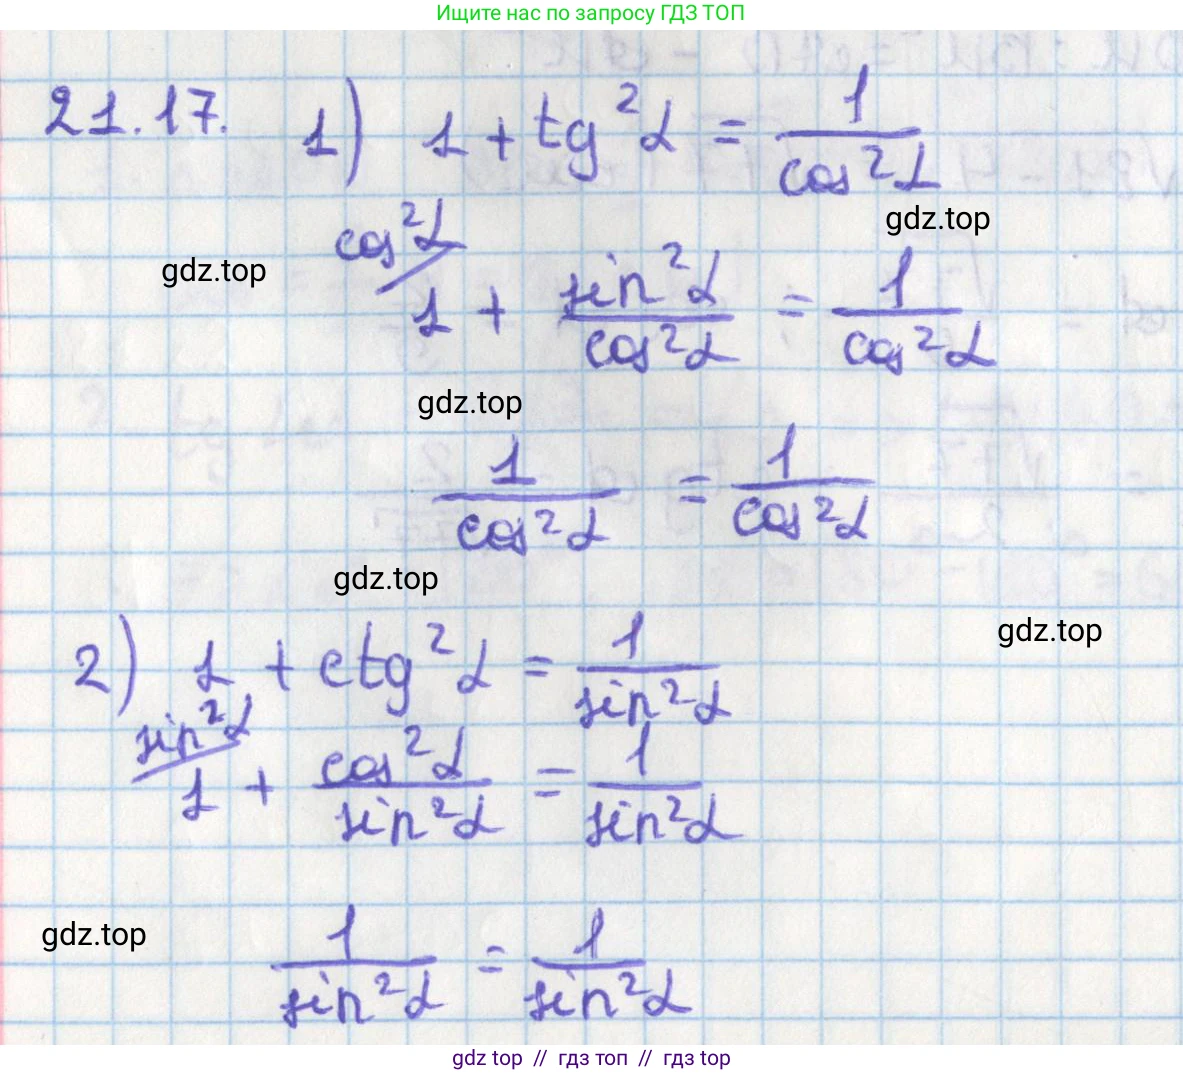 Ищите нас по запросу ГДЗ ТОП
21.17. 1) 1 + tg²α = 1/cos²α
gdz.top
cos²α/
gdz.top
1 + sin²α/cos²α = 1/cos²α
gdz.top
1/cos²α = 1/cos²α
gdz.top
gdz.top
2) 1 + ctg²α = 1/sin²α
sin²α/
1 + cos²α/sin²α = 1/sin²α
gdz.top
1/sin²α = 1/sin²α
gdz top // гдз топ // гдз top